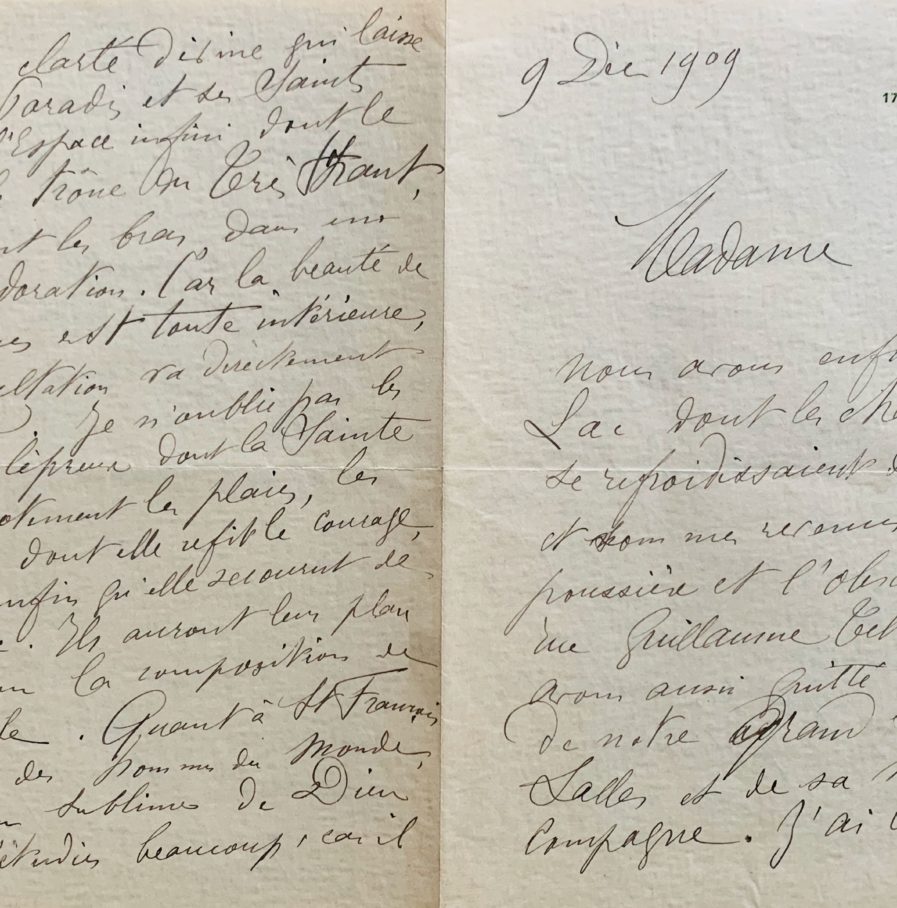 clarté divine qui laisse
Paradis et ses Saints
l'Espace infini dont le
trône du Très Haut,
les bras, dans une
doration. Car la beauté de
es est toute intérieure,
ltation va directement
Je n'oublie pas les
lépreux dont la Sainte
les plaies, les
dont elle refit le courage,
enfin qu'elle secourut de
. Ils auront leur plan
la composition de
le. Quant à St François
des hommes du monde,
sublimes de Dieu
étudies beaucoup, car il
9 Dec 1909
17
Madame
Nous avons enf
Lac dont les
se refroidissaient
et sommes revenus
poussière et l'obs
rue Guillaume Tel
avons aussi quitté
de notre Grand
Salles et de sa
compagne. J'ai